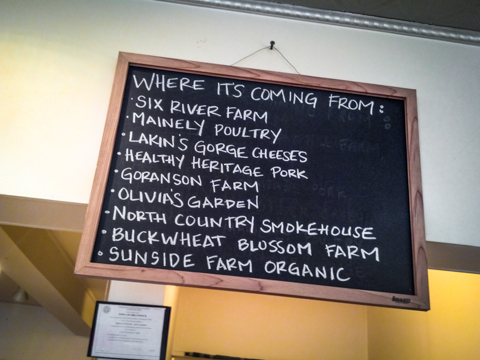 WHERE IT'S COMING FROM:
• SIX RIVER FARM
• MAINELY POULTRY
• LAKIN'S GORGE CHEESES
• HEALTHY HERITAGE PORK
• GORANSON FARM
• OLIVIA'S GARDEN
• NORTH COUNTRY SMOKEHOUSE
• BUCKWHEAT BLOSSOM FARM
• SUNSIDE FARM ORGANIC